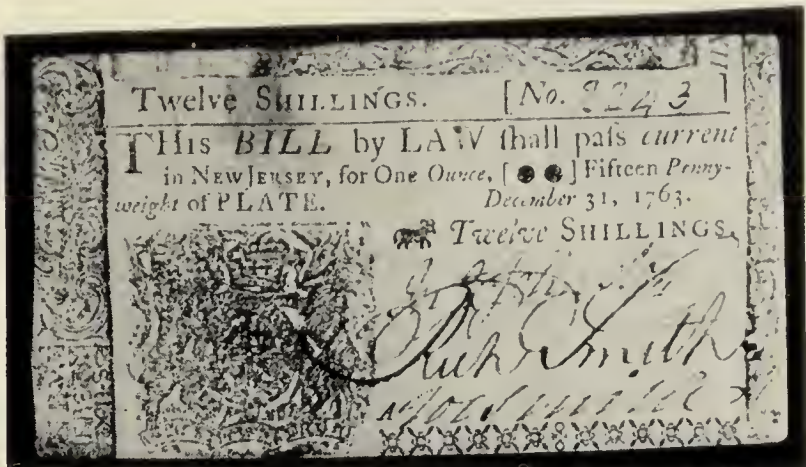 Twelve SHILLINGS. [No. 8243]
THis BILL by LAW ſhall paſs current
in NEW JERSEY, for One Ounce, [ ] Fifteen Penny-
weight of PLATE. December 31, 1763.
Twelve SHILLINGS.
Richd Smith